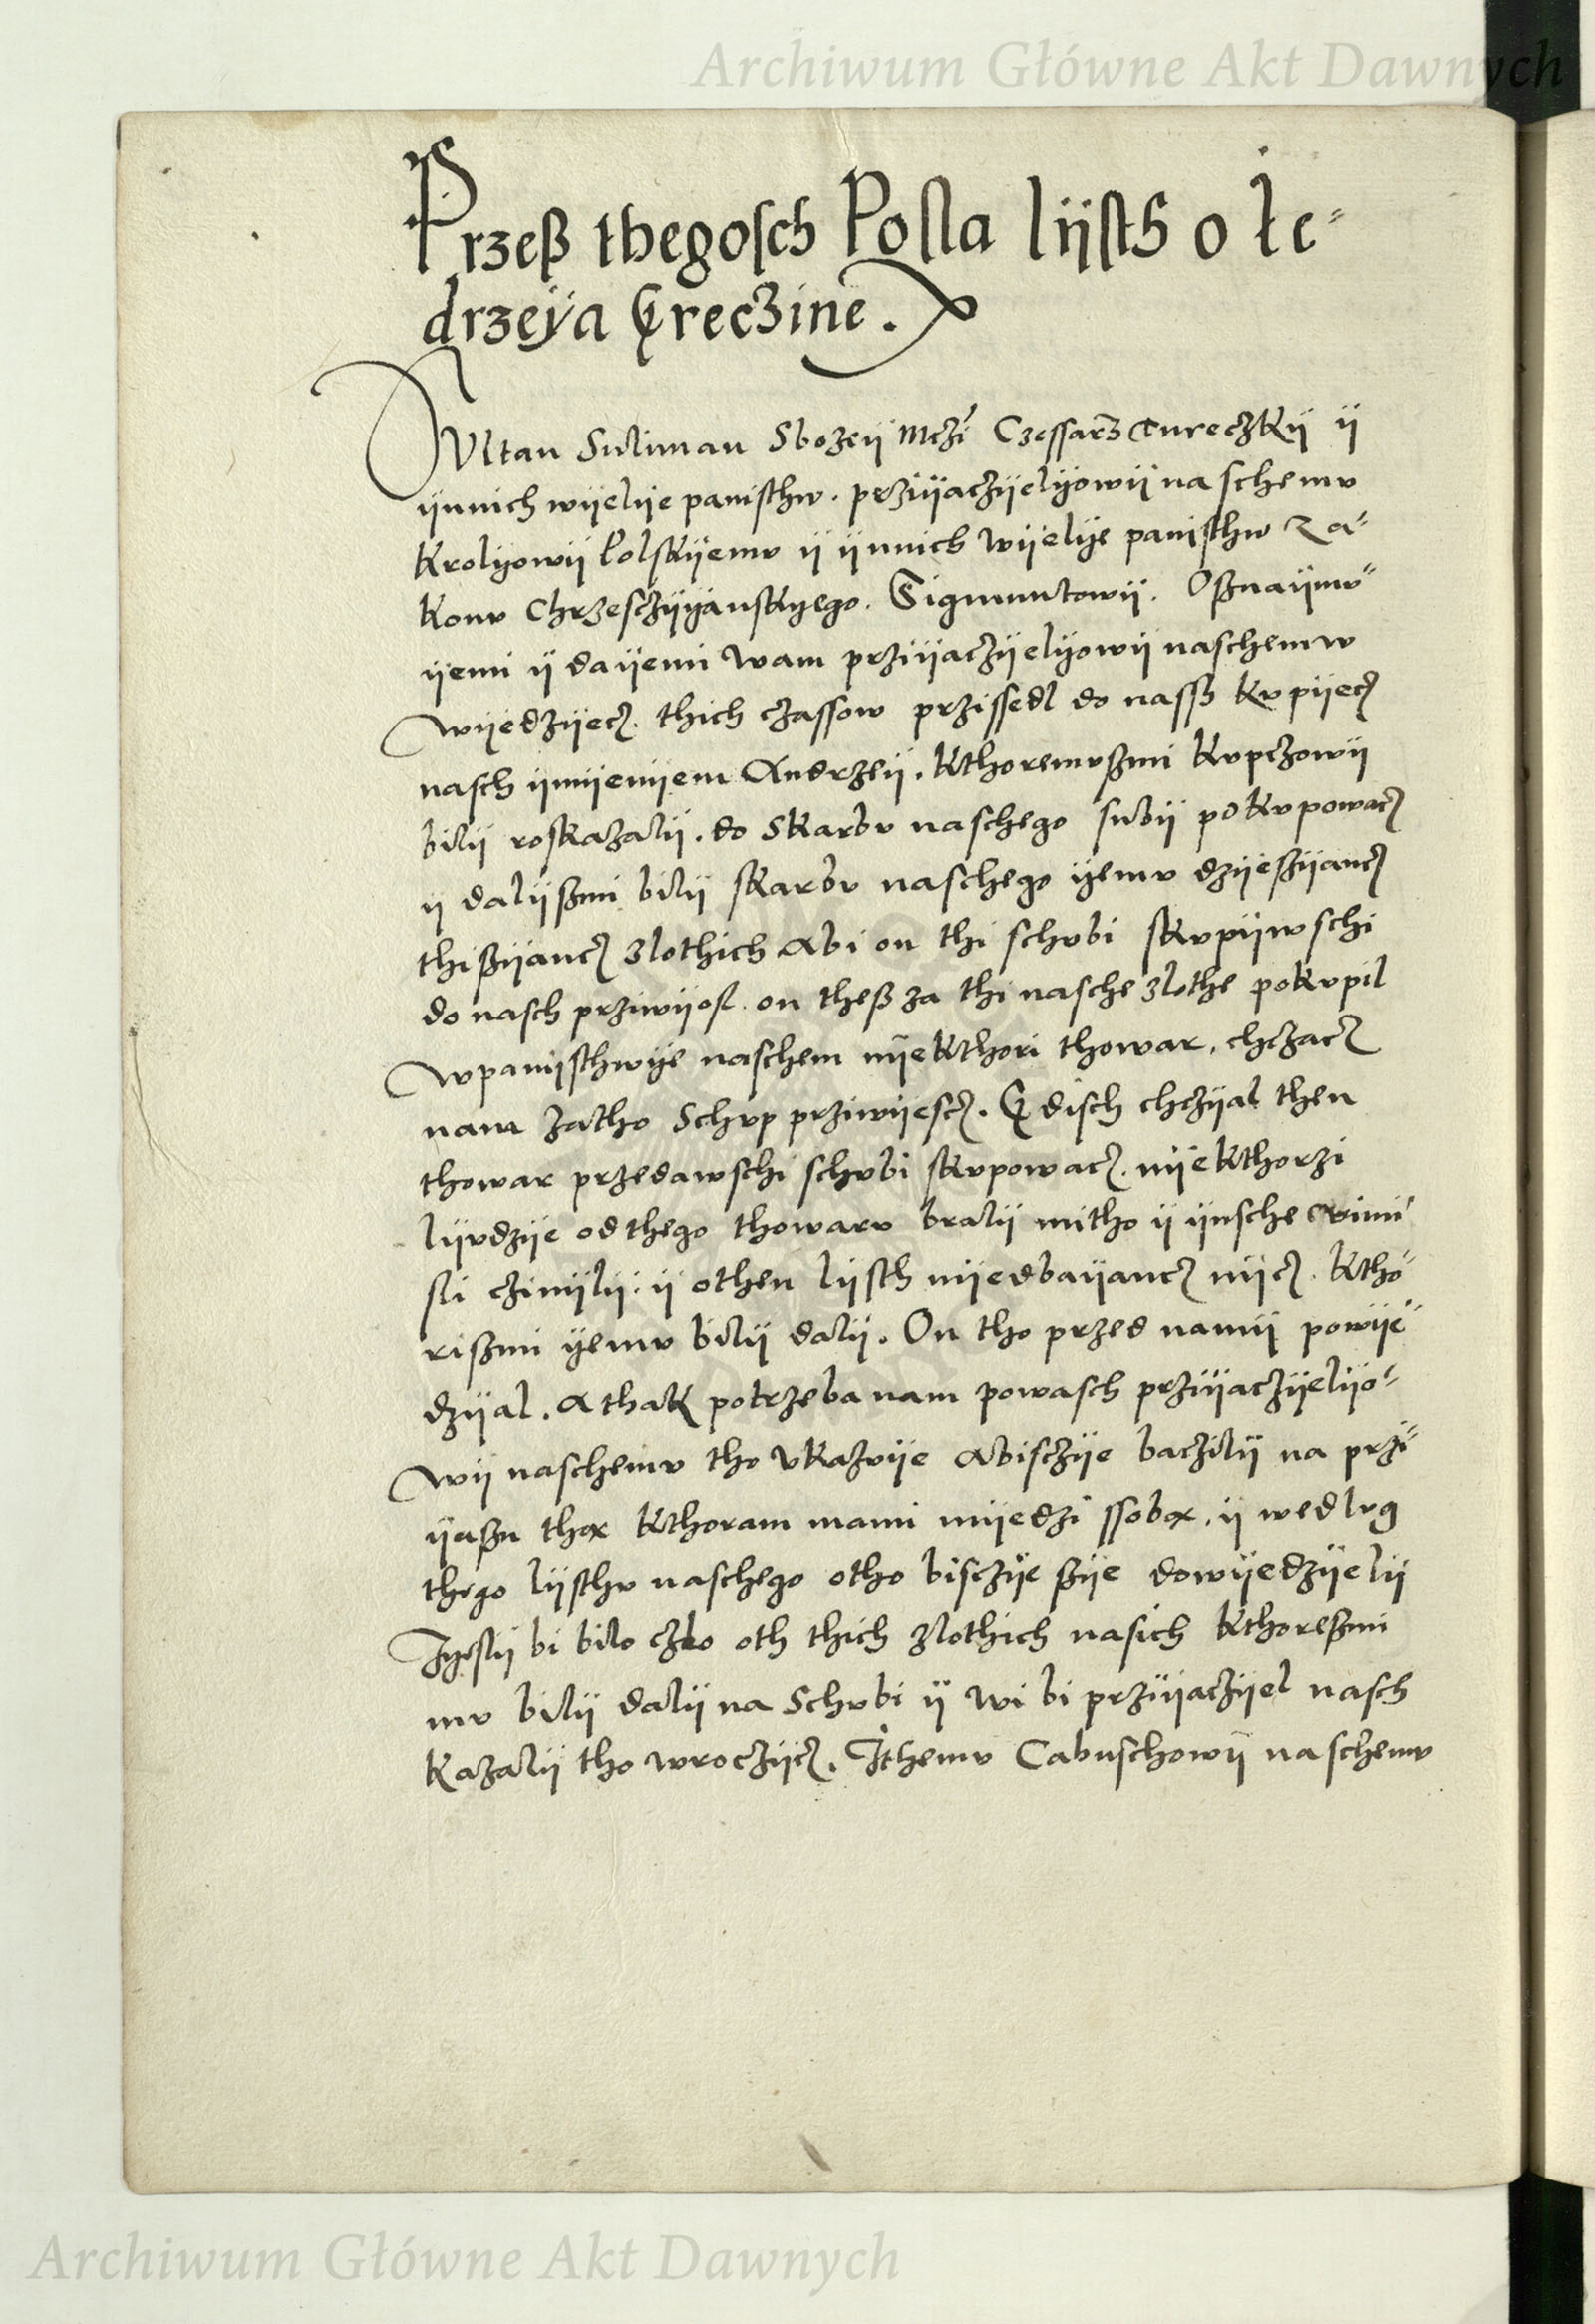 Archiwum Główne Akt Dawnych
Przeß thegosch Posla lijsth o Łe-
drzeÿa Greczine.
Sultan Suliman Sbozeÿ Mczi Czessarz Tureczkÿ ÿ
ÿnnich wÿelÿe panisthw. przÿaczÿelÿowÿ naschemv
Krolyowÿ Polskÿemv ÿ ÿnnich wÿelÿe panisthw Za-
konv Chrzesczÿyanskyego. Sigmuntowÿ. Oßnaÿmv-
ÿemi ÿ daÿemi wam przÿaczÿelyowÿ naschemw
wÿedzÿecz. thich czassow przissedl do nasß kvpÿecz
nasch ÿmÿenÿem Andrzeÿ. kthoremvßmi kvpczowÿ
bilÿ roskazalÿ. do Skarbv naschego subÿ pokvpowacz
ÿ dalÿßmi bilÿ skarbv naschego ÿemv dzÿeßÿancz
thißÿancz zlothich Abi on thi schvbi skvpÿwschi
do nasch prziwÿosl. on theß za thi nasche zlothe pokvpil
wpanÿsthwÿe naschem nÿekthori thowar, chczacz
nam zatho Schvp prziwÿescz. Gdisch chczÿal then
thowar przedawschi schvbi skvpowacz. nÿekthorzi
lÿvdzÿe od thego thowarv bralÿ mitho ÿ ÿnsche wimi
sli czinÿlÿ: ÿ othen lÿsth nÿedbaÿancz nÿcz. ktho-
rißmi ÿemv bilÿ dalÿ. On tho przed namÿ powÿe-
dzÿal. A thak potrzeba nam powasch przÿaczÿelÿo-
wÿ naschemv tho vkazvÿe Abisczÿe baczilÿ na przi-
ÿaßn thą kthoram mami mÿedzi ssobą, ÿ wedlvg
thego lÿsthv naschego otho bisczÿe ßÿe dowÿedzÿelÿ
Jyeslÿ bi bilo czko oth thich zlothich nasich kthoreßmi
mv bilÿ dalÿ na Schvbi ÿ wi bi przÿaczÿel nasch
kazalÿ tho wroczÿcz. Jthemv Cabuschowÿ naschemv
Archiwum Główne Akt Dawnych